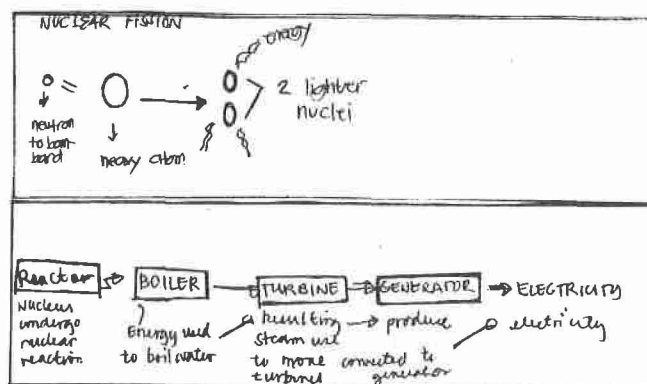 NUCLEAR FISSION
energy
2 lighter
nuclei
neutron
to bom
bard
heavy atom
Reactor
BOILER
TURBINE
GENERATOR
ELECTRICITY
Nucleus
undergo
nuclear
reaction
Energy used
to boil water
Resulting
steam use
to move
turbines
produce
connected to
generator
electricity